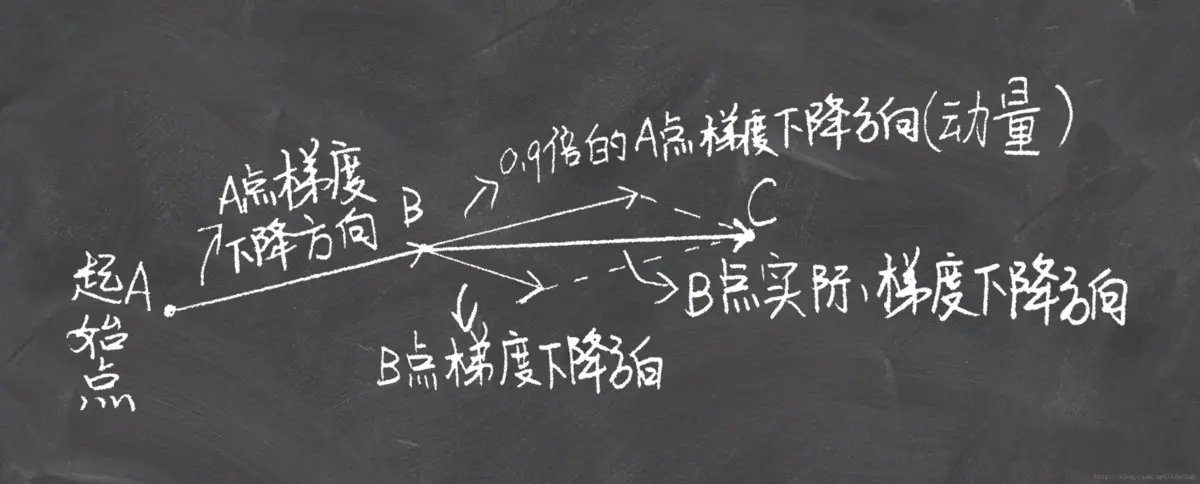 0.9倍的A点梯度下降方向(动量)
A点梯度
下降方向
B
C
起A
始
点
B点实际梯度下降方向
B点梯度下降方向